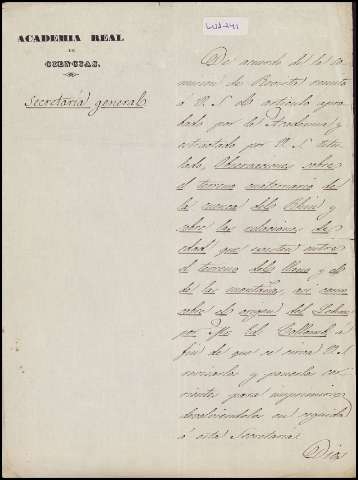 ACADEMIA REAL
DE
CIENCIAS.
Secretaría general
De acuerdo de la co
mision de Revista remito
á V. S. el artículo apro
bado por la Academia y
estractado por V. S. titu
lado, Observaciones sobre
el terreno cuaternario de
la cuenca del Rhin y
sobre las relaciones de
edad que existen entre
el terreno del llano y el
de las montañas, asi como
sobre el origen del Lehm
por Mr. Ed. Collomb, á
fin de que se sirva V. S
revisarlo y ponerlo co
rriente para imprimirse
devolviéndolo en seguida
á esta Secretaría.
Dios